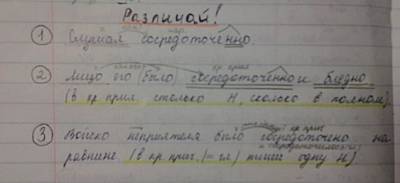 Различай!
① Слушал сосредоточенно.
② Лицо его было сосредоточенно и бледно
(в кр. прил. столько Н, сколько в полном)
③ Войско неприятеля было сосредоточено на
равнине (в кр. прич. (= гл) пишем одну Н)